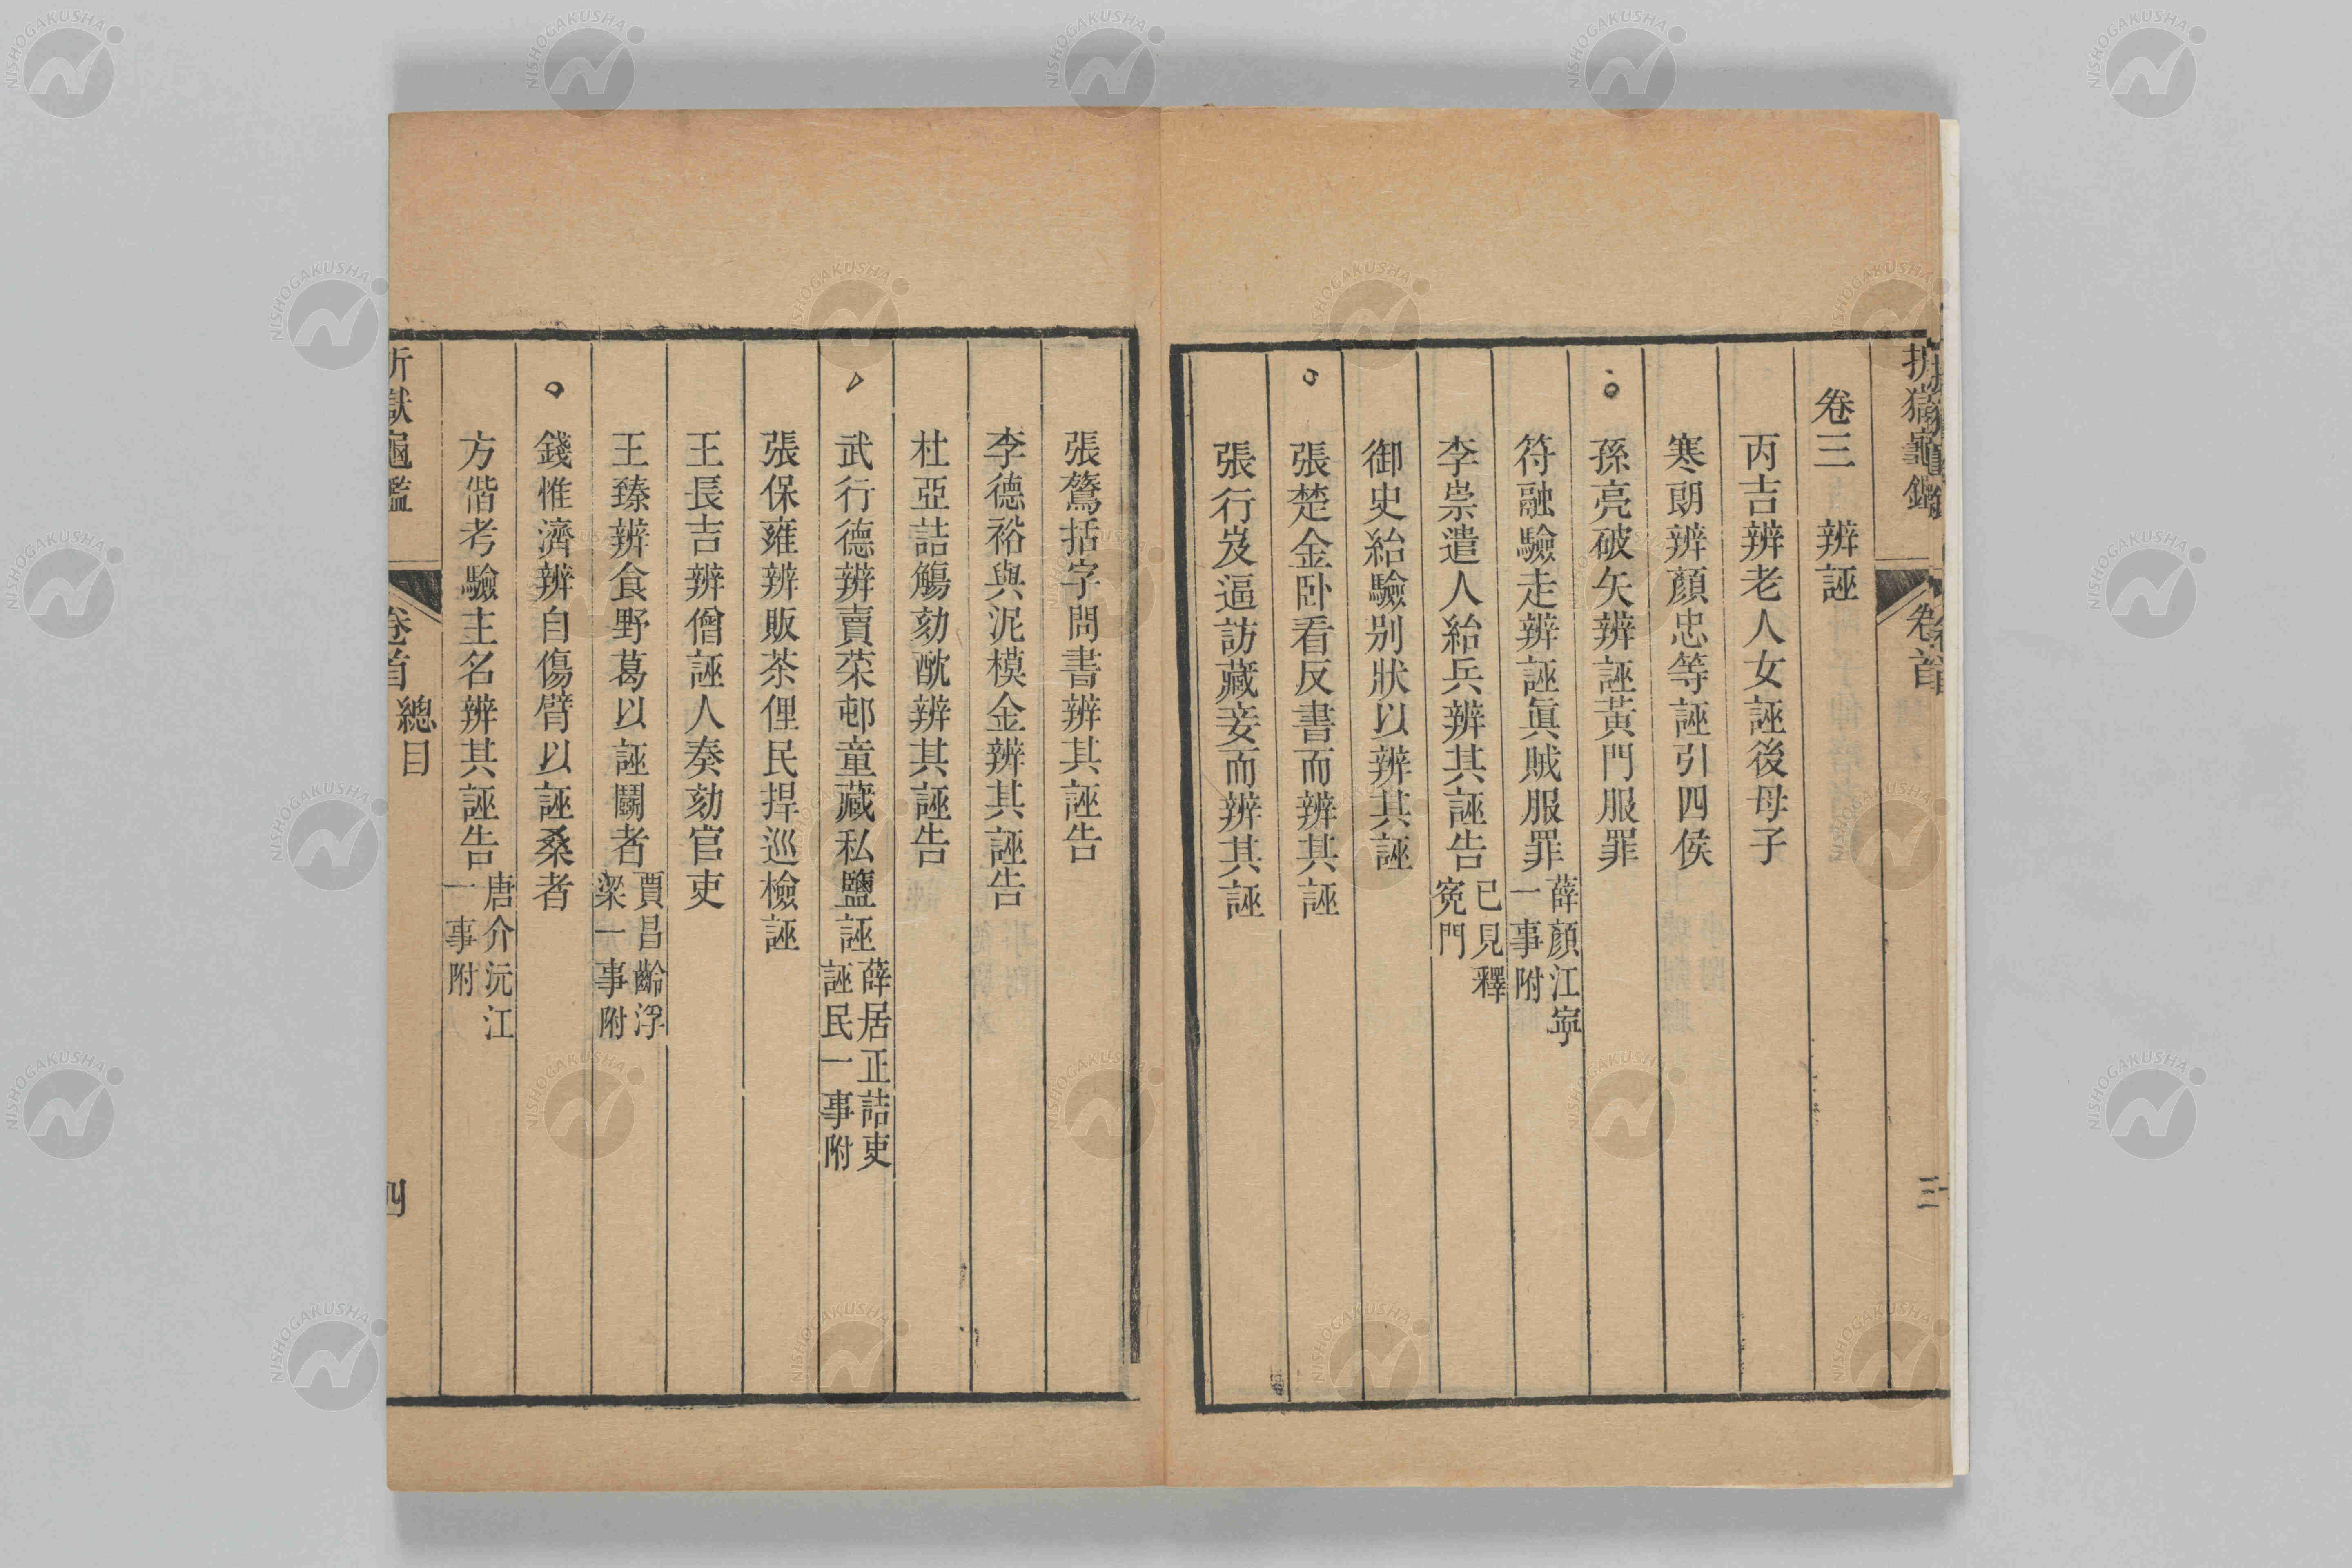 折獄龜鑑
卷首
三
卷三　辨誣
丙吉辨老人女誣後母子
寒朗辨顏忠等誣引四侯
孫亮破矢辨誣黃門服罪
符融驗走辨誣眞賊服罪薛顏江寧
一事附
李崇遣人紿兵辨其誣告已見釋
寃門
御史紿驗別狀以辨其誣
張楚金卧看反書而辨其誣
張行岌逼訪藏妾而辨其誣
張鷟括字問書辨其誣告
李德裕與泥模金辨其誣告
杜亞詰觴劾酖辨其誣告
武行德辨賣菜邨童藏私鹽誣薛居正詰吏
誣民一事附
張保雍辨販茶俚民捍巡檢誣
王長吉辨僧誣人奏劾官吏
王臻辨食野葛以誣鬭者賈昌齡浮
梁一事附
錢惟濟辨自傷臂以誣桑者
方偕考驗主名辨其誣告唐介沅江
一事附
折獄龜鑑
卷首
總目
四
NISHOGAKUSHA